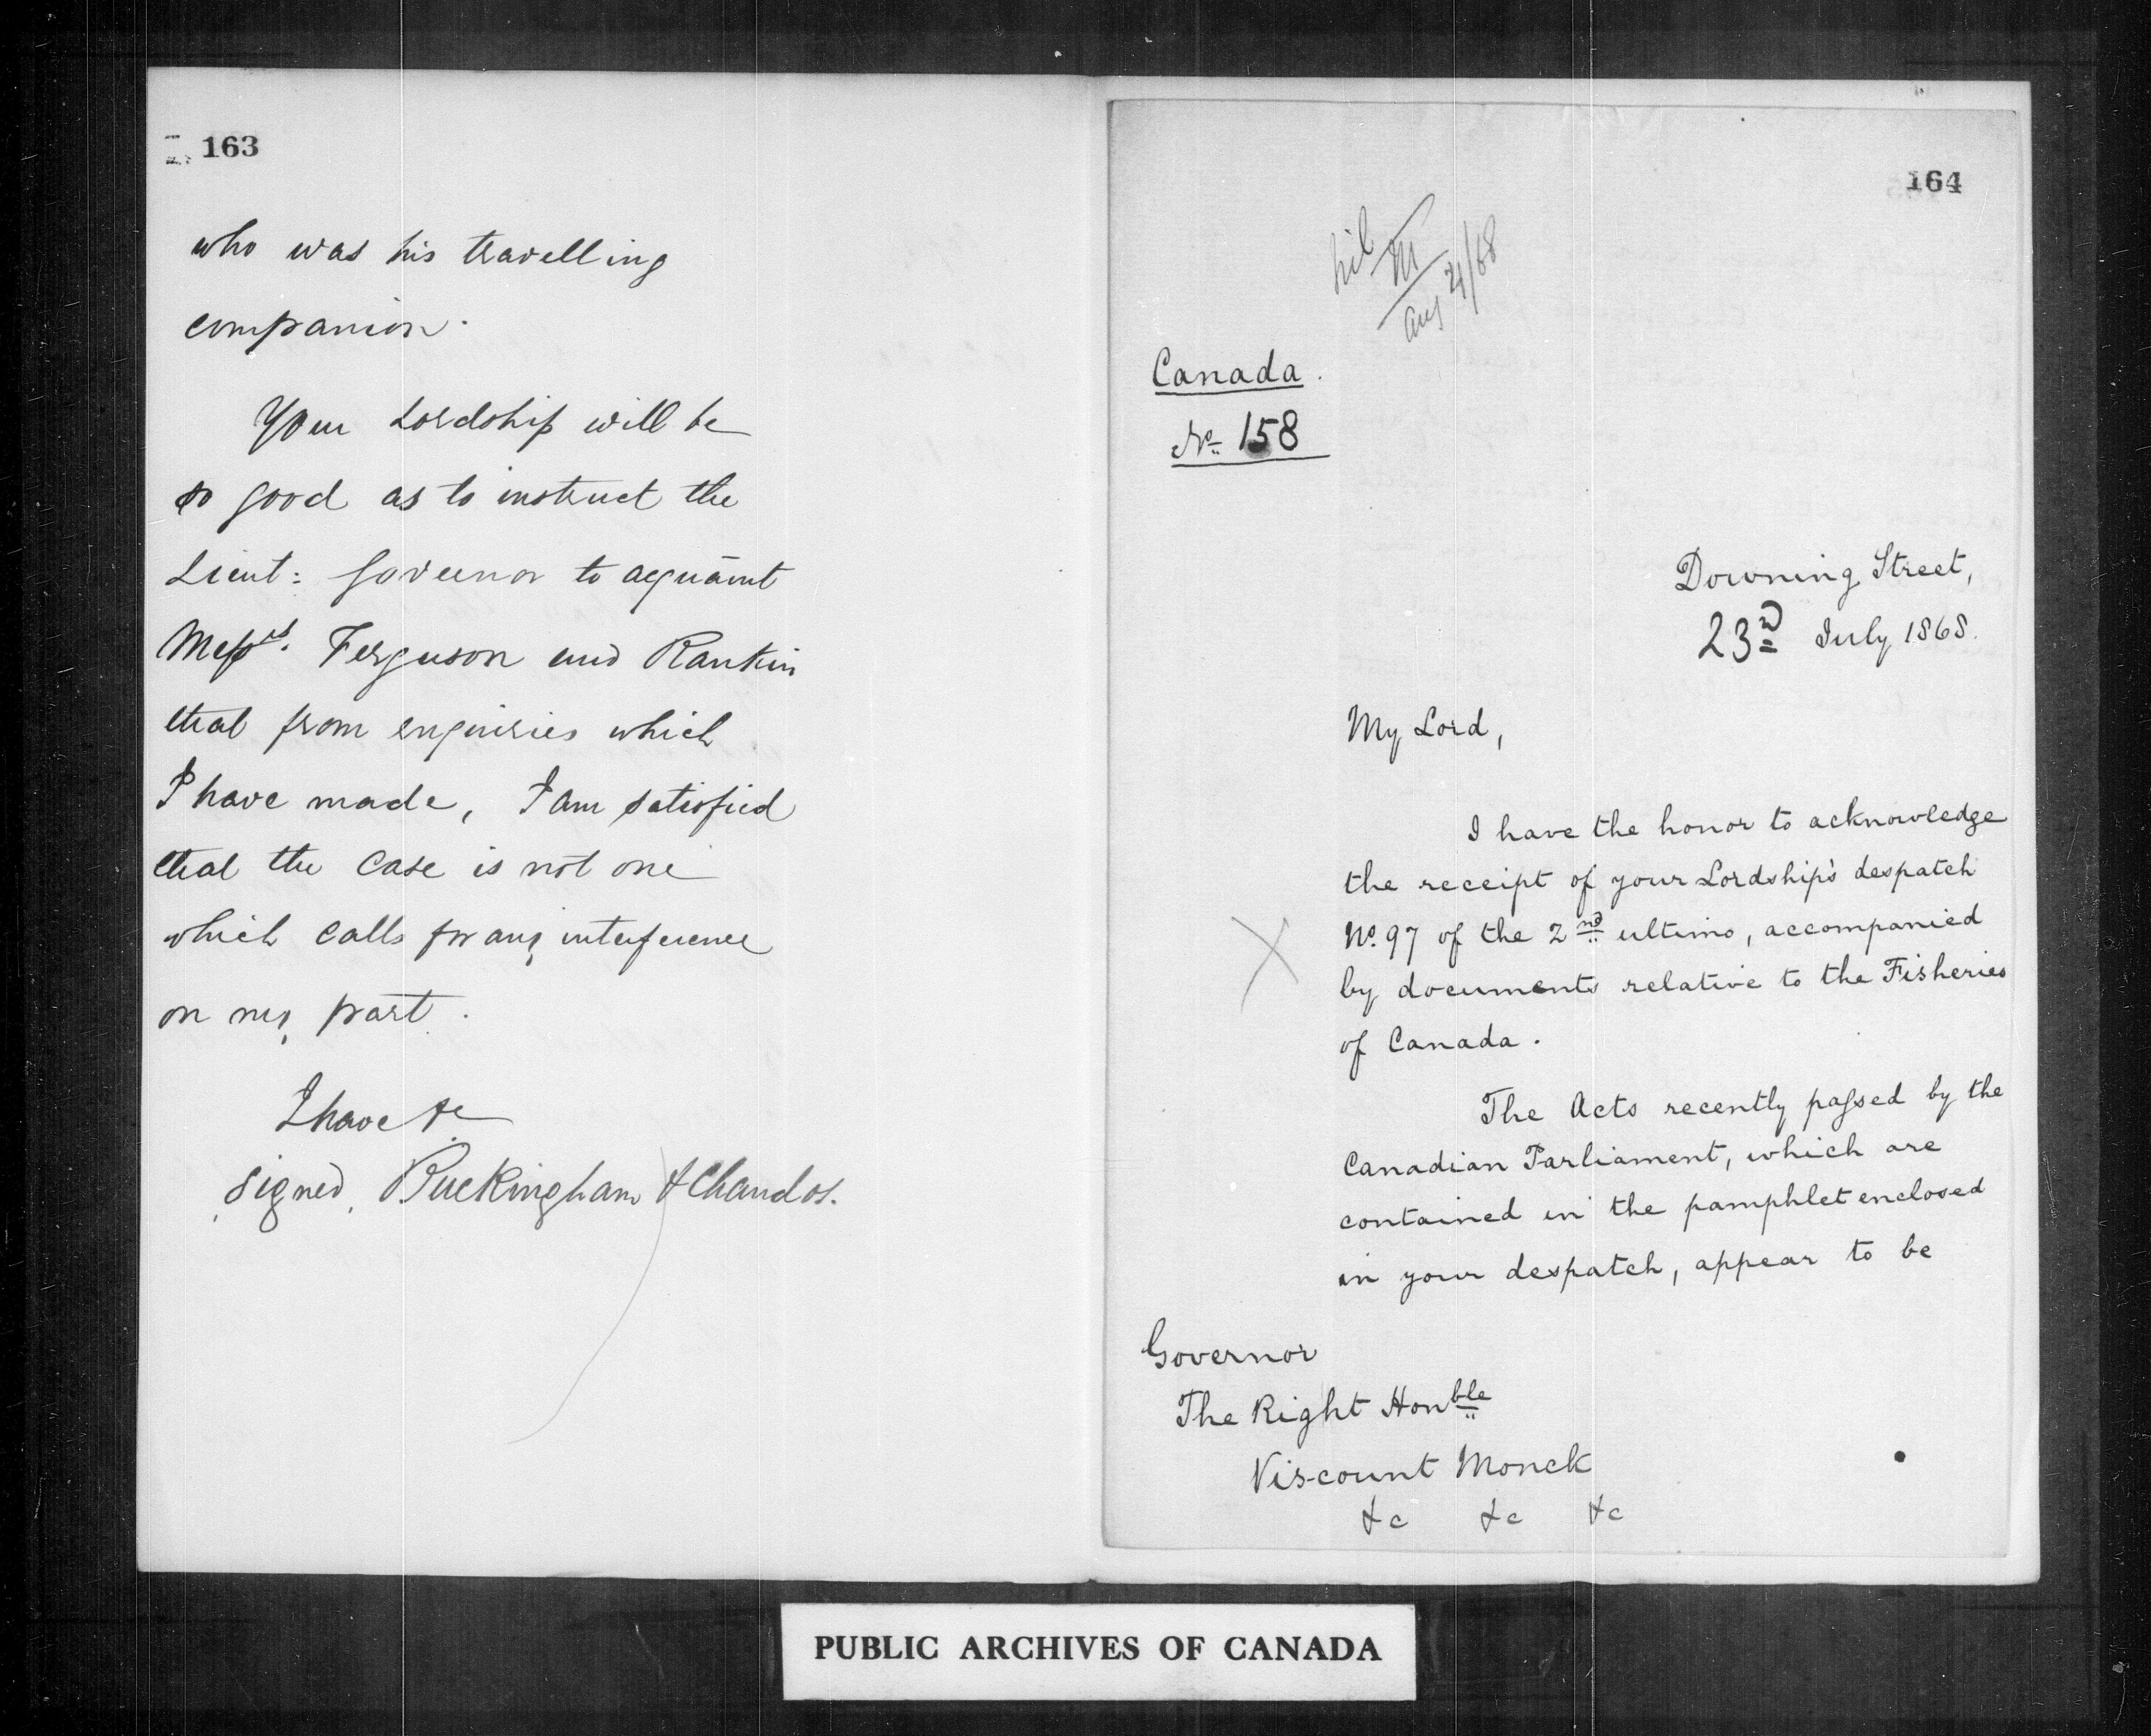 163
who was his travelling
companion.
Your Lordship will be
so good as to instruct the
Lieut: Governor to acquaint
Messrs. Ferguson and Rankin
that from enquiries which
I have made, I am satisfied
that the case is not one
which calls for any interference
on my part.
I have &c
signed, Buckingham & Chandos.
164
nil
M
Aug /68
Canada.
No. 158
Downing Street,
23rd July 1868.
My Lord,
I have the honor to acknowledge
the receipt of your Lordship's despatch
No. 97 of the 2nd ultimo, accompanied
by documents relative to the Fisheries
of Canada.
The Acts recently passed by the
Canadian Parliament, which are
contained in the pamphlet enclosed
in your despatch, appear to be
Governor
The Right Honble
Viscount Monck
&c &c &c
PUBLIC ARCHIVES OF CANADA